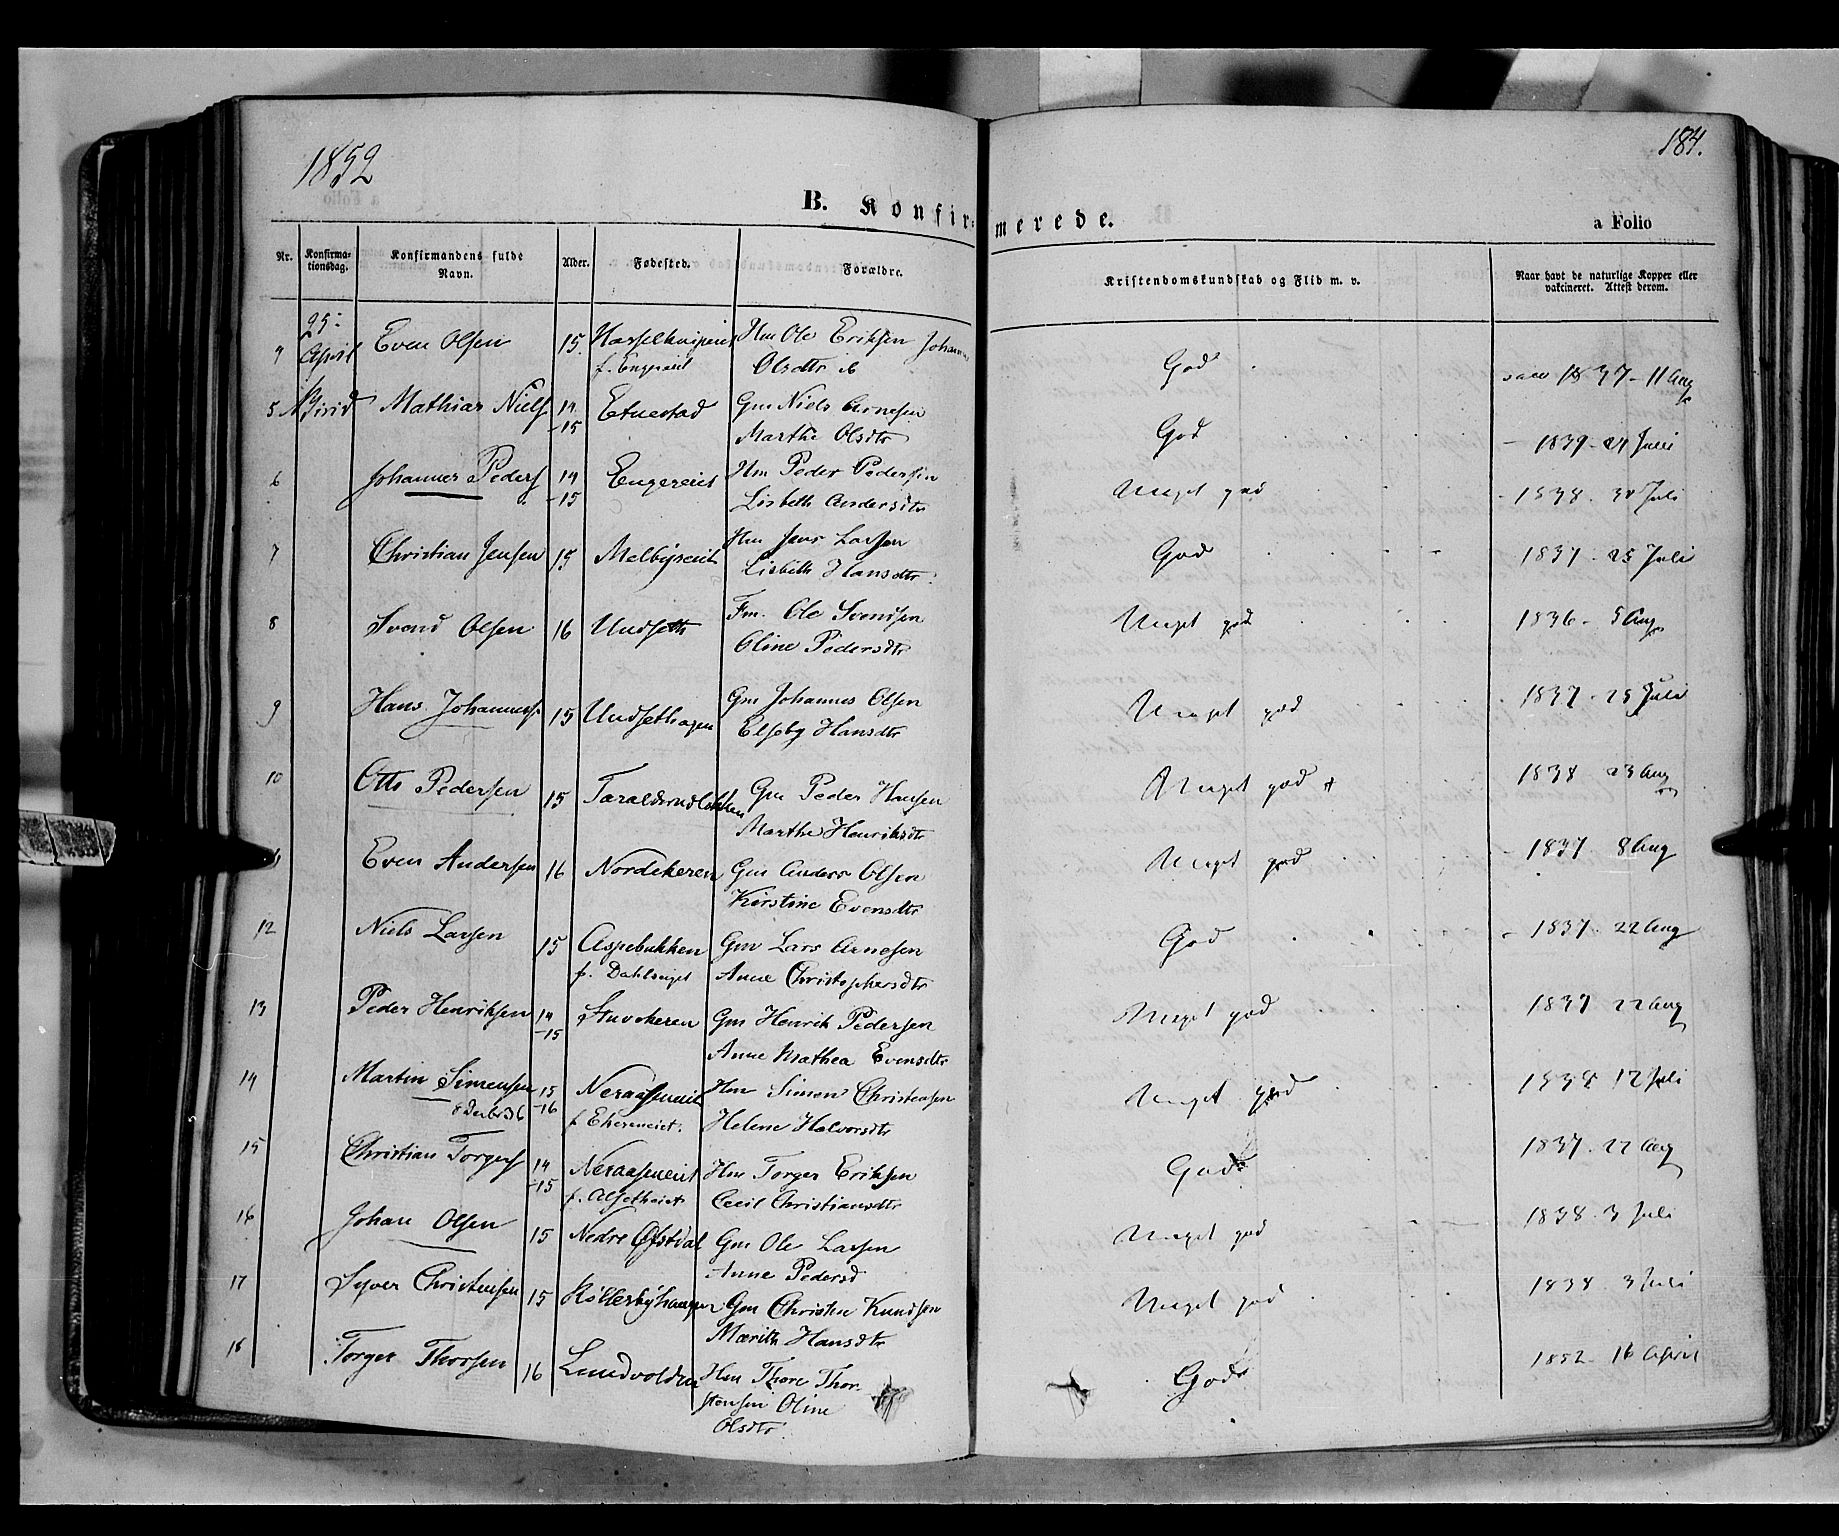 1852
184.
B. Konfirmerede.
a Folio
Nr. Konfirmationsdag. Konfirmandens fulde Navn. Alder. Fødested. Forældre. Kristendomskundskab og Flid m. v. Naar havt de naturlige Kopper eller vakcineret. Attest derom.
25: April
4 Even Olsen 15. f. Engereiet Hm Ole Eriksen Johanne Olsdtr God vacc 1837 - 11 Aug
5 Birid Mathias Niels 14-15 Etnestad Gm Niels Arnesen Marthe Olsdtr God - 1839 - 24 Juli
6 Johannes Peders 14-15 Engereiet Hm Peder Pedersen Lisbeth Andersdtr Meget god - 1838 - 30 Juli
7 Christian Jensen 15 Melbyeeiet Hm Jens Larsen Lisbeth Hansdtr. God 1837 - 25 Juli
8 Svend Olsen 16 Undseth Fm. Ole Svendsen Oline Pedersdtr Meget god 1836 - 5 Aug
9 Hans Johanness 15 Undsethagen Gm Johannes Olsen Elseby Hansdtr Meget god 1837 - 25 Juli
10 Otto Pedersen 15 Gm Peder Hansen Marthe Henriksdtr Meget god + 1838 23 Aug
11 Even Andersen 16 Nordekeren Gm Anders Olsen Kirstine Evensdtr Meget god - 1837 8 Aug
12 Niels Larsen 15 Aspebakken f. Dahlseiet Gm Lars Arnesen Anne Christophersdtr God - 1837 - 22 Aug
13 Peder Henriksen 14-15 Stuvekeren Gm Henrik Pedersen Anne Mathea Evensdtr Meget god 1837 22 Aug
14 Martin Simensen 15-16 Neraaseneiet Hm Simen Christensen Helene Halvorsdtr Meget god 1838 12 Juli
15 Christian Torgers 14-15 Neraaseneiet f. Alsetheiet Hm Torger Eriksen Cecil Christiansdtr God 1837 - 22 Aug
16 Johan Olsen 15 Nedre Ofstdal Gm Ole Larsen Anne Pedersd Meget god 1838 - 3 Juli
17 Syver Christensen 15 Gm Christen Knudsen Marith Hansdtr Meget god 1838 3 Juli
18 Torger Thorsen 16 Lundvolden Hm Thore Thorstensen Oline Olsdtr God 1852 - 16 April